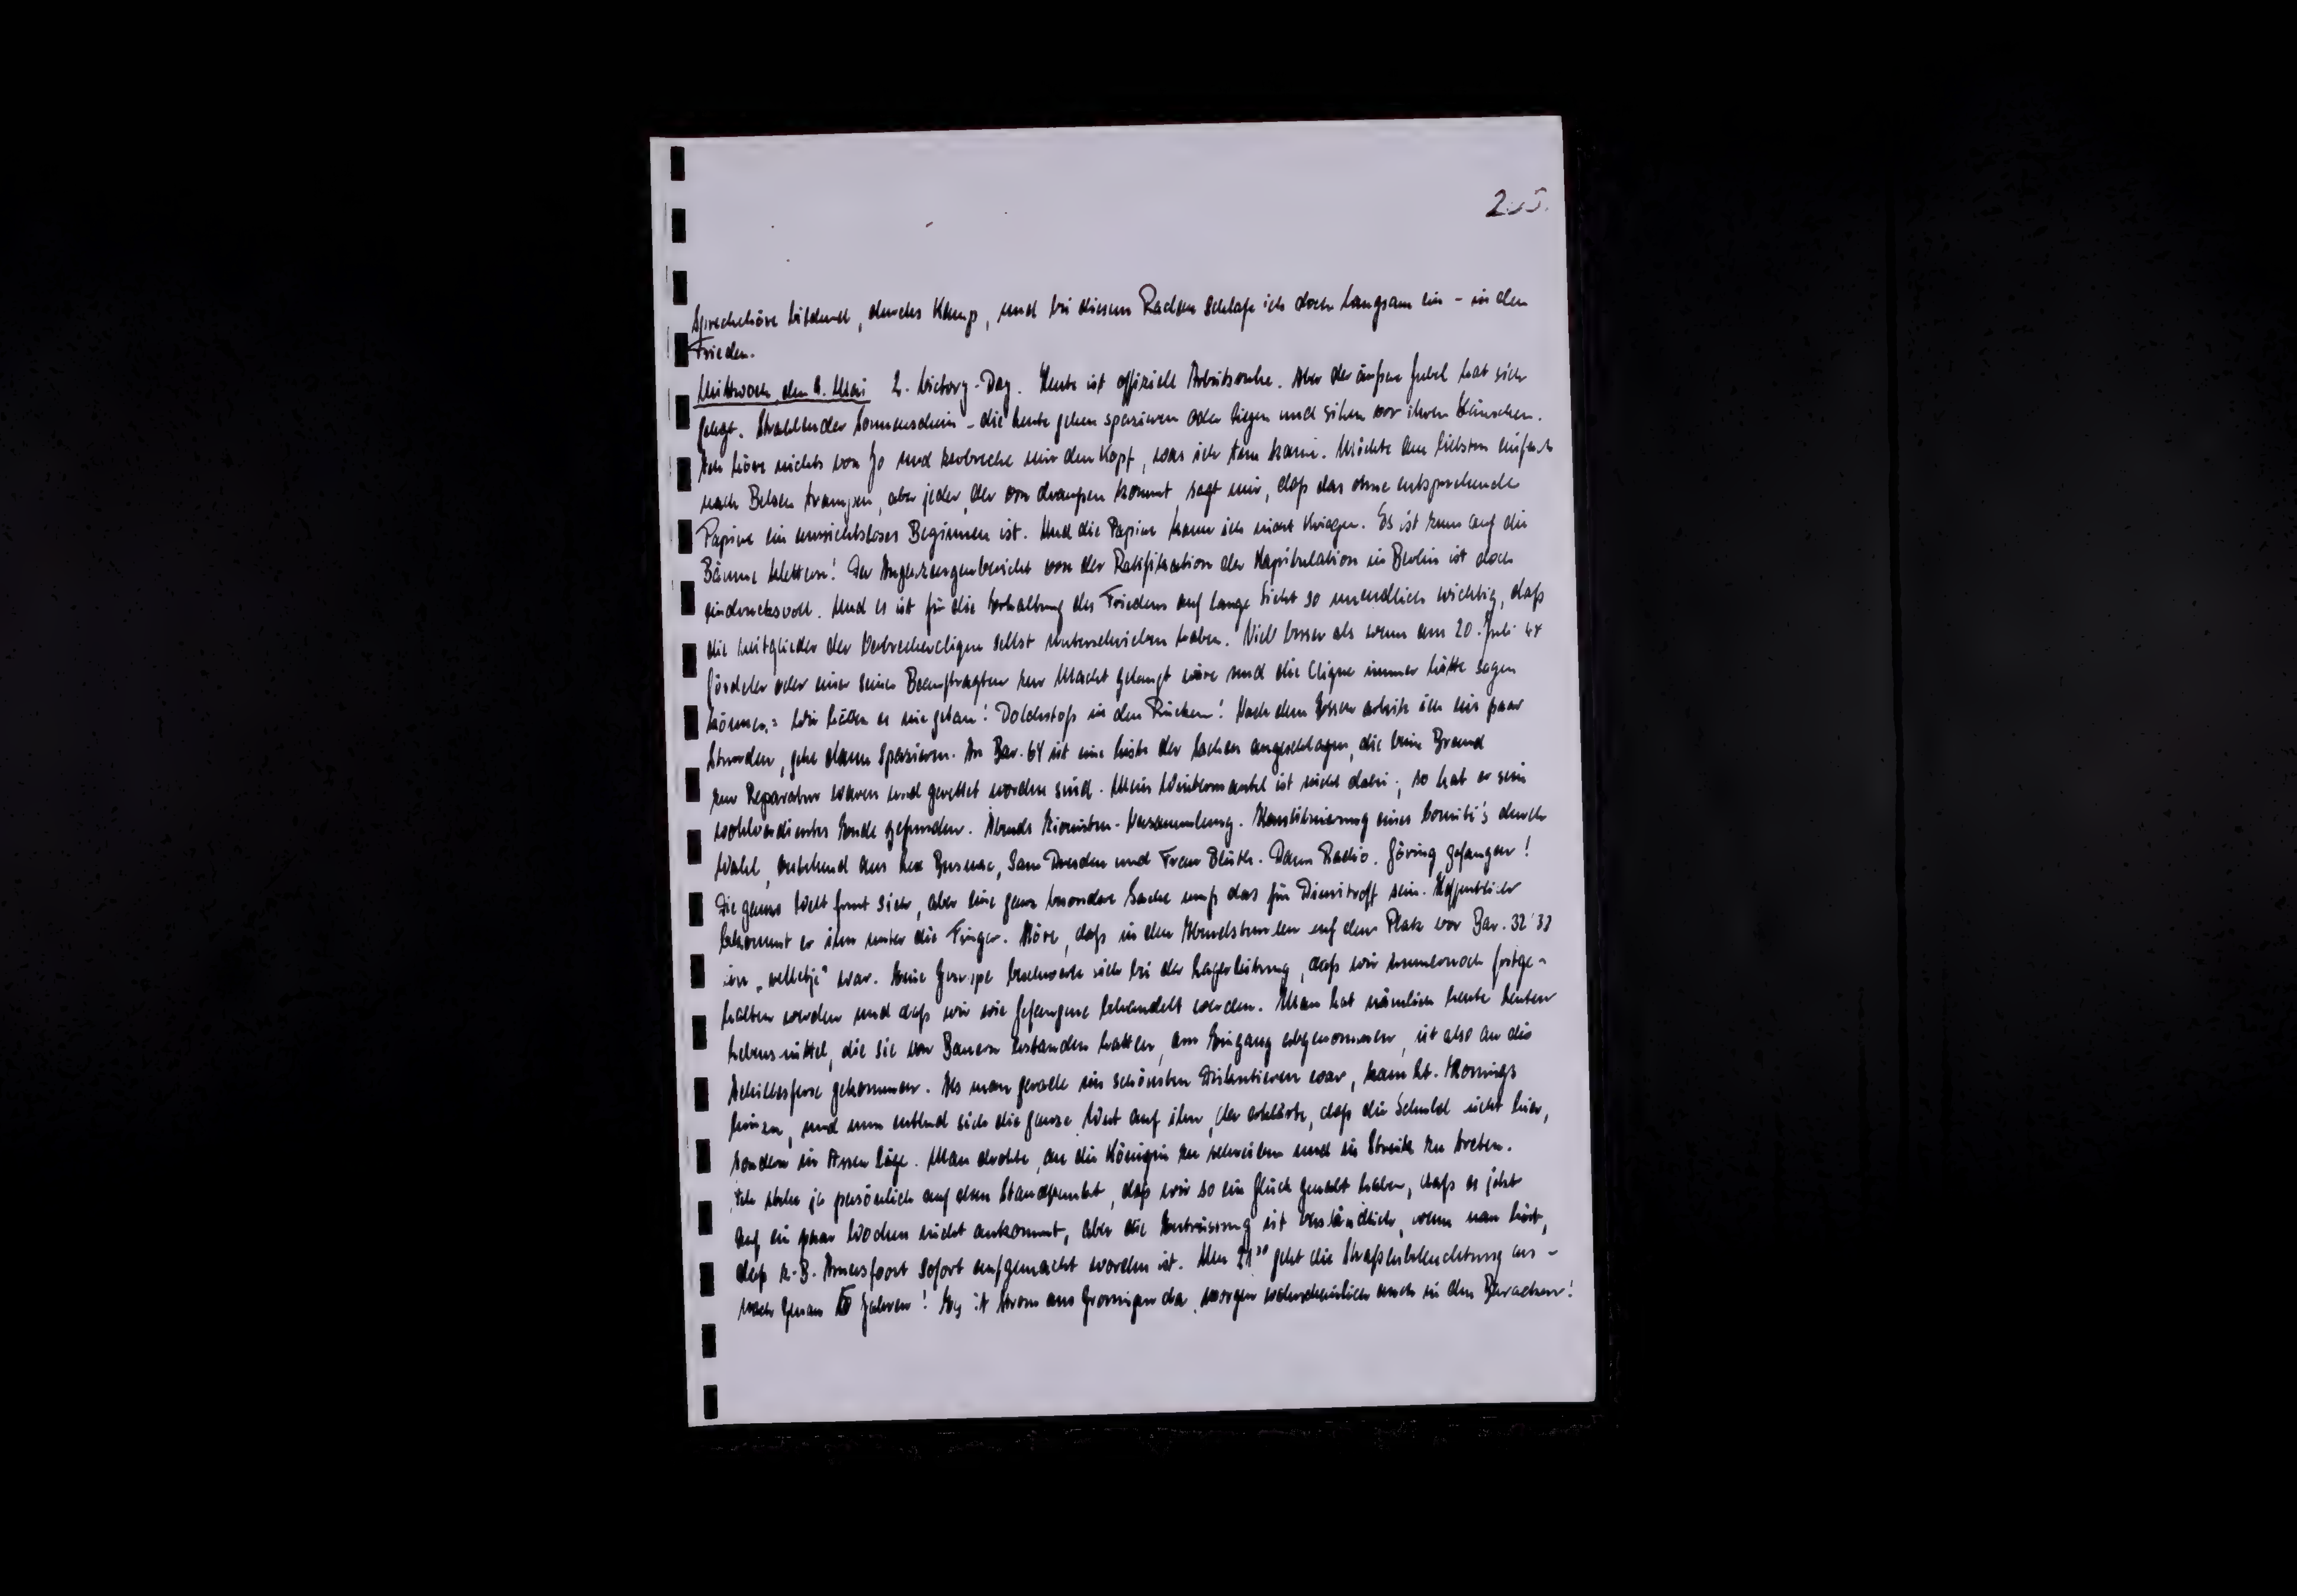 205.
Sprechchöre bildend, durchs Kamp, und bei diesem Radau schlafe ich doch langsam ein - in den
Frieden.
Mittwoch, den 9. Mai 2. Victory-Day. Heute ist offiziell Arbeitsruhe. Aber der äußere Jubel hat sich
gelegt. Strahlender Sonnenschein - die Leute gehen spazieren oder liegen und sitzen vor ihren Häuschen.
Ich höre nichts von Jo und zerbreche mir den Kopf, was ich tun kann. Möchte am liebsten einfach
nach Belsen trampen, aber jeder, der von draußen kommt, sagt mir, daß das ohne entsprechende
Papiere ein aussichtsloses Beginnen ist. Und die Papiere kann ich nicht kriegen. Es ist zum auf die
Bäume klettern! Der Augenzeugenbericht von der Ratifikation der Kapitulation in Berlin ist doch
eindrucksvoll. Und es ist für die Erhaltung des Friedens auf lange Sicht so unendlich wichtig, daß
die Mitglieder der Verbrecherclique selbst unterschrieben haben. Viel besser als wenn am 20. Juli 44
Gördeler oder einer seiner Beauftragten zur Macht gelangt wäre und die Clique immer hätte sagen
können: Wir hätten es nie getan! Dolchstoß in den Rücken! Nach dem Essen arbeite ich ein paar
Stunden, gehe dann spazieren. An Bar. 64 ist eine Liste der Sachen angeschlagen, die beim Brand
zur Reparatur waren und gerettet worden sind. Mein Wintermantel ist nicht dabei; so hat er sein
wohlverdientes Ende gefunden. Abends Zionisten-Versammlung. Konstituierung eines Comité's durch
Wahl, bestehend aus Lex Sam Dresden und Frau Blüth. Dann Radio. Göring gefangen!
Die ganze Welt freut sich, aber eine ganz besondere Sache muß das für Dimitroff sein. Hoffentlich
bekommt er ihn unter die Finger. Höre, daß in den Abendstunden auf dem Platz vor Bar. 32/33
ein „relletje" war. Eine Gruppe beschwerte sich bei der Lagerleitung, daß wir immernoch festge-
halten werden und daß wir wie Gefangene behandelt werden. Man hat nämlich heute Leuten
Lebensmittel, die sie von Bauern erstanden hatten, am Eingang abgenommen, ist also an die
Achillesferse gekommen. Als man gerade im schönsten Diskutieren war, kam Lt. Konings
hinzu, und nun entlud sich die ganze Wut auf ihn, der erklärte, daß die Schuld nicht hier,
sondern in Assen läge. Man drohte, an die Königin zu schreiben und in Streik zu treten.
Ich stehe ja persönlich auf dem Standpunkt, daß wir so ein Glück gehabt haben, daß es jetzt
auf ein paar Wochen nicht ankommt, aber die Entrüstung ist verständlich, wenn man hört,
daß z.B. Amersfoort sofort aufgemacht worden ist. Um 21³⁰ geht die Straßenbeleuchtung an -
nach genau 5 Jahren! Es ist Strom aus Groningen da, morgen wahrscheinlich auch in den Baracken!